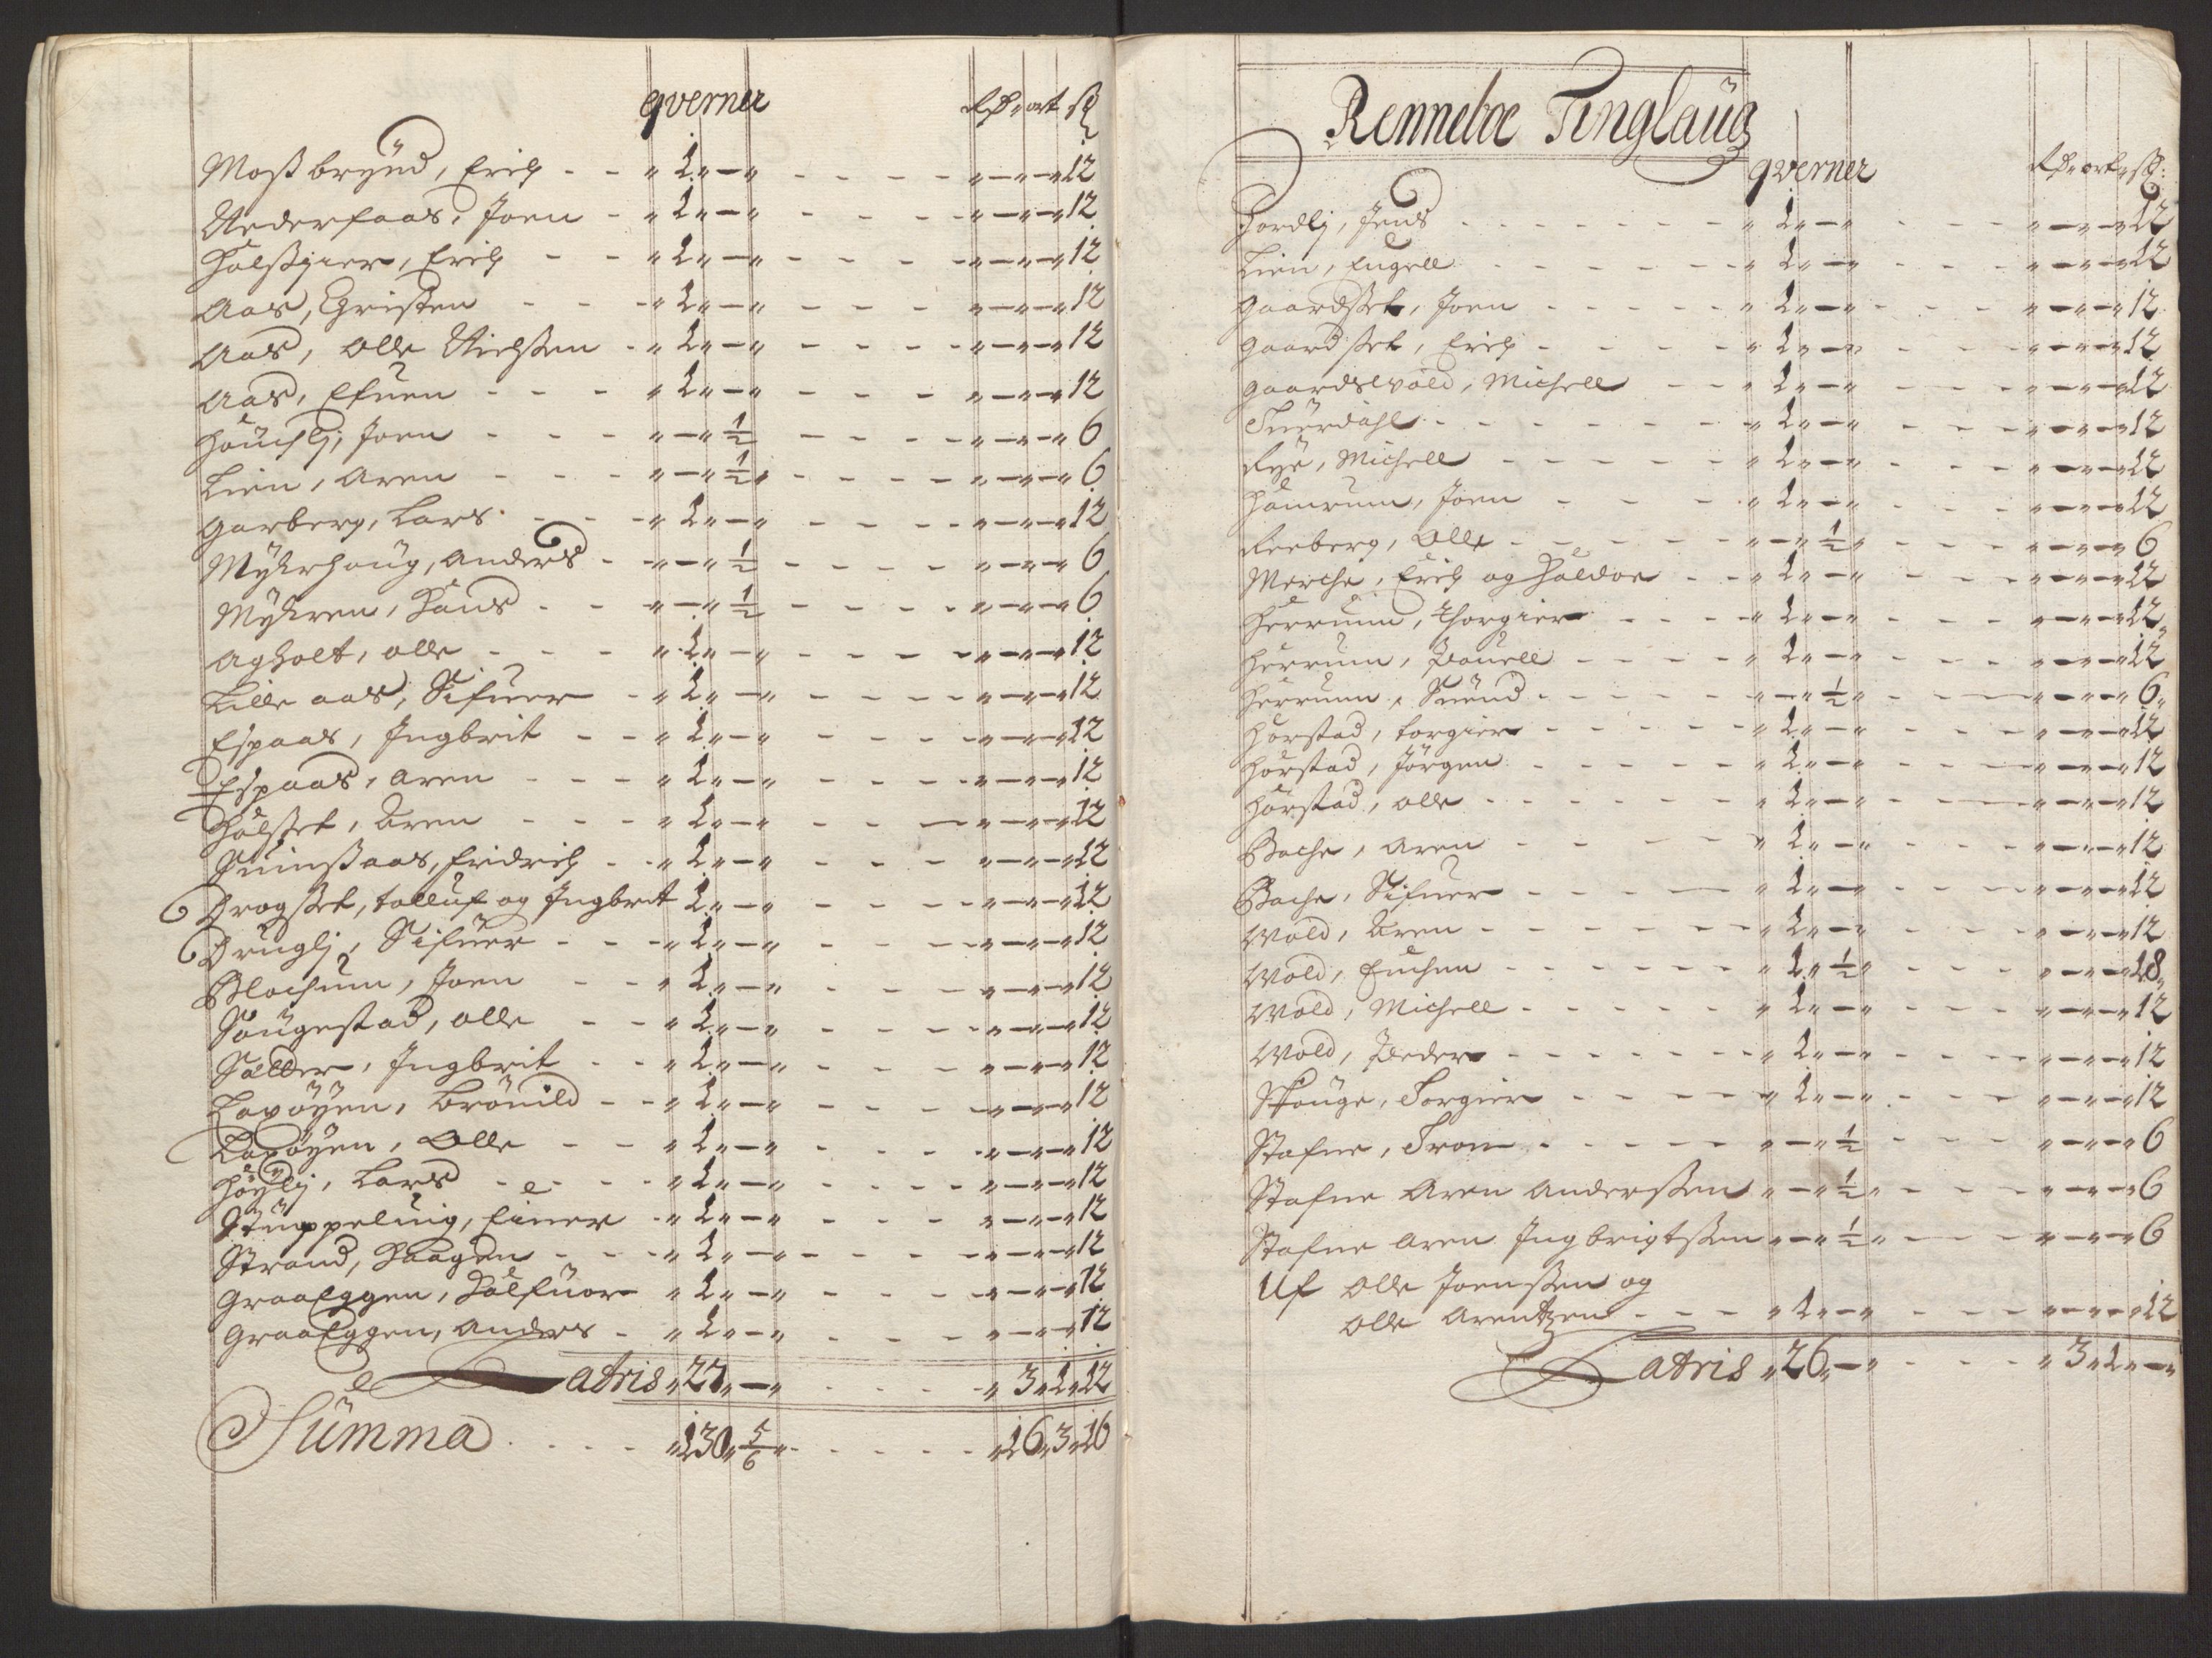 qverner Rdr ort ß
Mossbrynd, Erich - - " 1 " — " - - - - " — " — " 12
Nederfaas, Joen - " 1 " — " - - - - " — " — " 12
Holssgier, Erich - - " 1 " — " - - - - " — " — " 12
Aas, Christen - - - " 1 " — " - - - " — " — " 12
Aas, Olle Nielssen - " 1 " — " - - - - " — " — " 12
Aas, Efuen - - - " 1 " — " - - - " — " — " 12
Houchlj, Joen - - - " — " 1/2 - - - - " — " — " 6
Lien, Aren - - - " — " 1/2 " - - - - " — " — " 6
Garberg, Lars - - - " 1 " — " - - - - " — " — " 12
Mykrhoug, Anders - " — " 1/2 - - - - " — " — " 6
Mykren, Hans - - " — " 1/2 - - - - " — " — " 6
Agholt, Olle - - - " 1 " — " - - - - " — " — " 12
Lille aas, Sifuer - " 1 " — " - - - - " — " — " 12
Espaas, Ingbrit - - " 1 " — " - - - - " — " — " 12
Espaas, Aren - - - " 1 " — " - - - - " — " — " 12
Holsset, Aren - - - " 1 " — " - - - " — " — " 12
Suinsaas, Fridrich - - " 1 " — " - - - " — " — " 12
Drogsset, tolluf og Ingbrit 1 " — " - - - - " — " — " 12
Druglj, Sifuer - - - " 1 " — " - - - - " — " — " 12
Blochum, Joen - - " 1 " — " - - - - " — " — " 12
Sougestad, Olle - - " 1 " — " - - - - " — " — " 12
Solder, Ingbrit - - " 1 " — " - - - - " — " — " 12
Loxöyen, Brönild - - " 1 " — " - - - - " — " — " 12
Loxöyen, Olle - - " 1 " — " - - - - " — " — " 12
Höylj, Lars - - - " 1 " — " - - - - " — " — " 12
Stuppeluig, Einer - " 1 " — " - - - " — " — " 12
Strand, Haagen - - - " 1 " — " - - - - " — " — " 12
GraaEggen, Halfuor " 1 " — " - - - - " — " — " 12
GraaEggen, Anders - " 1 " — " - - - - " — " — " 12
Latris " 27 " — " - - - - " 3 " 1 " 12
Summa - - - - " 130 " 5/6 " - - - - - " 16 " 3 " 16
Renneboe Tinglaug
qverner Rdr ort ß
Hordlj, Jens - - - - - - " 1 " — " - - - " — " — " 12
Lien, Engell - - - - - " 1 " — " - - - " — " — " 12
Gaardsset, Joen - - - - - " 1 " — " - - - " — " — " 12
Gaardsset, Erich - - - - - " 1 " — " - - - " — " — " 12
Gaardswold, Michell - - " 1 " — " - - - " — " — " 12
Tuerdahl - - - - - - - " 1 " — " - - - " — " — " 12
Rye, Michell - - - - - " 1 " — " - - - " — " — " 12
Hamrum, Joen - - - - " 1 " — " - - - " — " — " 12
Reeberg, Olle - - - - - " — " 1/2 " - - - " — " — " 6
Merche, Erich og Haldor - - " 1 " — " - - - " — " — " 12
Herrum, Thorgier - - - - " 1 " — " - - - " — " — " 12
Herrum, Pouell - - - - " 1 " — " - - - " — " — " 12
Herrum, Suend - - - - - " — " 1/2 " - - - " — " — " 6
Horstad, torgier - - - - - " 1 " — " - - - " — " — " 12
Horstad, Jörgen - - - - - " 1 " — " - - - " — " — " 12
Horstad, Olle - - - - - - " 1 " — " - - - " — " — " 12
Bache, Aren - - - - - " 1 " — " - - - " — " — " 12
Bache, Sifuer - - - - - " 1 " — " - - - " — " — " 12
Wold, Aren - - - - - - " 1 " — " - - - " — " — " 12
Wold, Enchen - - - - - - " 1 " 1/2 " - - - " — " — " 18
Wold, Michell - - - - - " 1 " — " - - - " — " — " 12
Wold, Peder - - - - - - " 1 " — " - - - " — " — " 12
Skouge, Torgier - - - - " 1 " — " - - - " — " — " 12
Stafne, Tron - - - - - " — " 1/2 - - - " — " — " 6
Stafne Aren Anderssen " — " 1/2 " - - - " — " — " 6
Stafne Aren Ingbrigtssen " — " 1/2 " - - - " — " — " 6
Uf Olle Joenssen og
Olle Arentzen - - - " 1 " — " - - - " — " — " 12
Latris " 26 " — " - - - - " 3 " 1 " — "